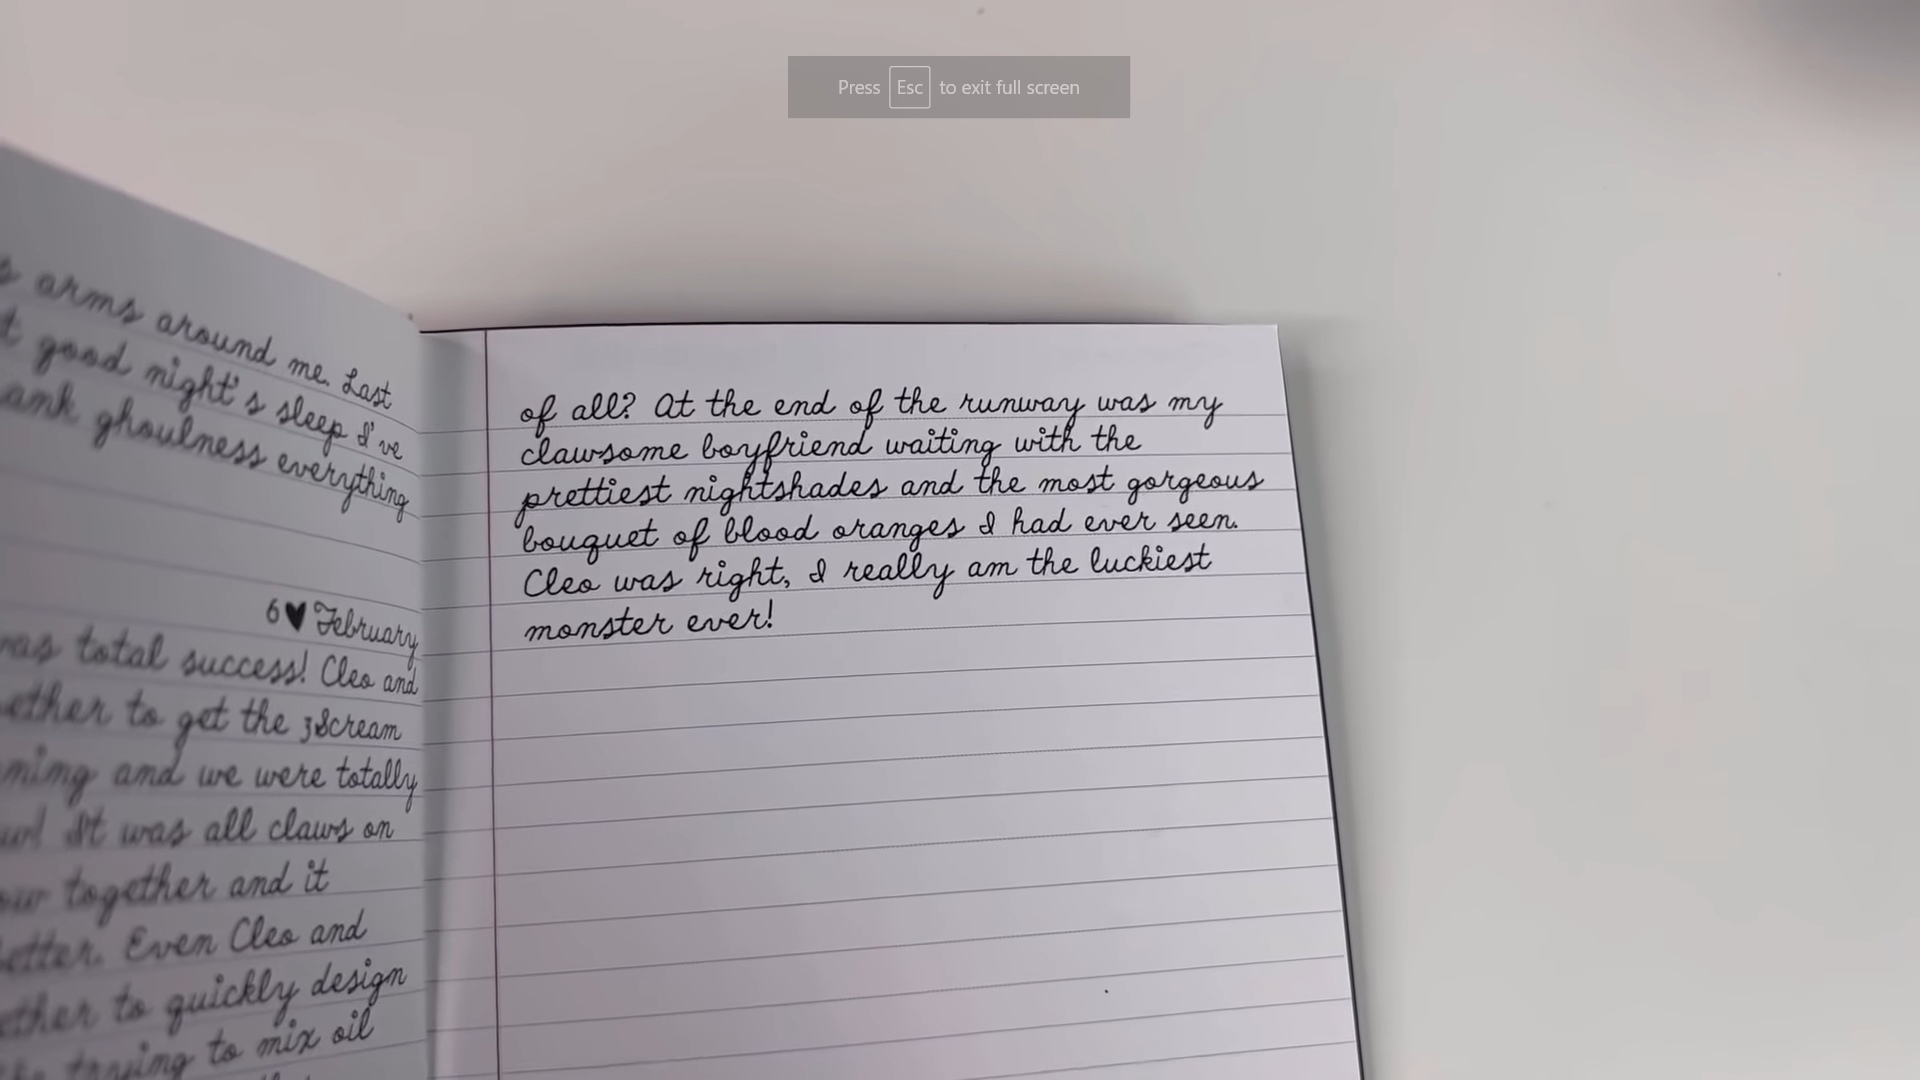 Press Esc to exit full screen
arms around me. Last
good night's sleep I've
ghoulness everything
6♥February
total success! Cleo and
to get the 3Scream
and we were totally
It was all claws on
together and it
Even Cleo and
to quickly design
trying to mix oil
of all? At the end of the runway was my
clawsome boyfriend waiting with the
prettiest nightshades and the most gorgeous
bouquet of blood oranges I had ever seen.
Cleo was right, I really am the luckiest
monster ever!